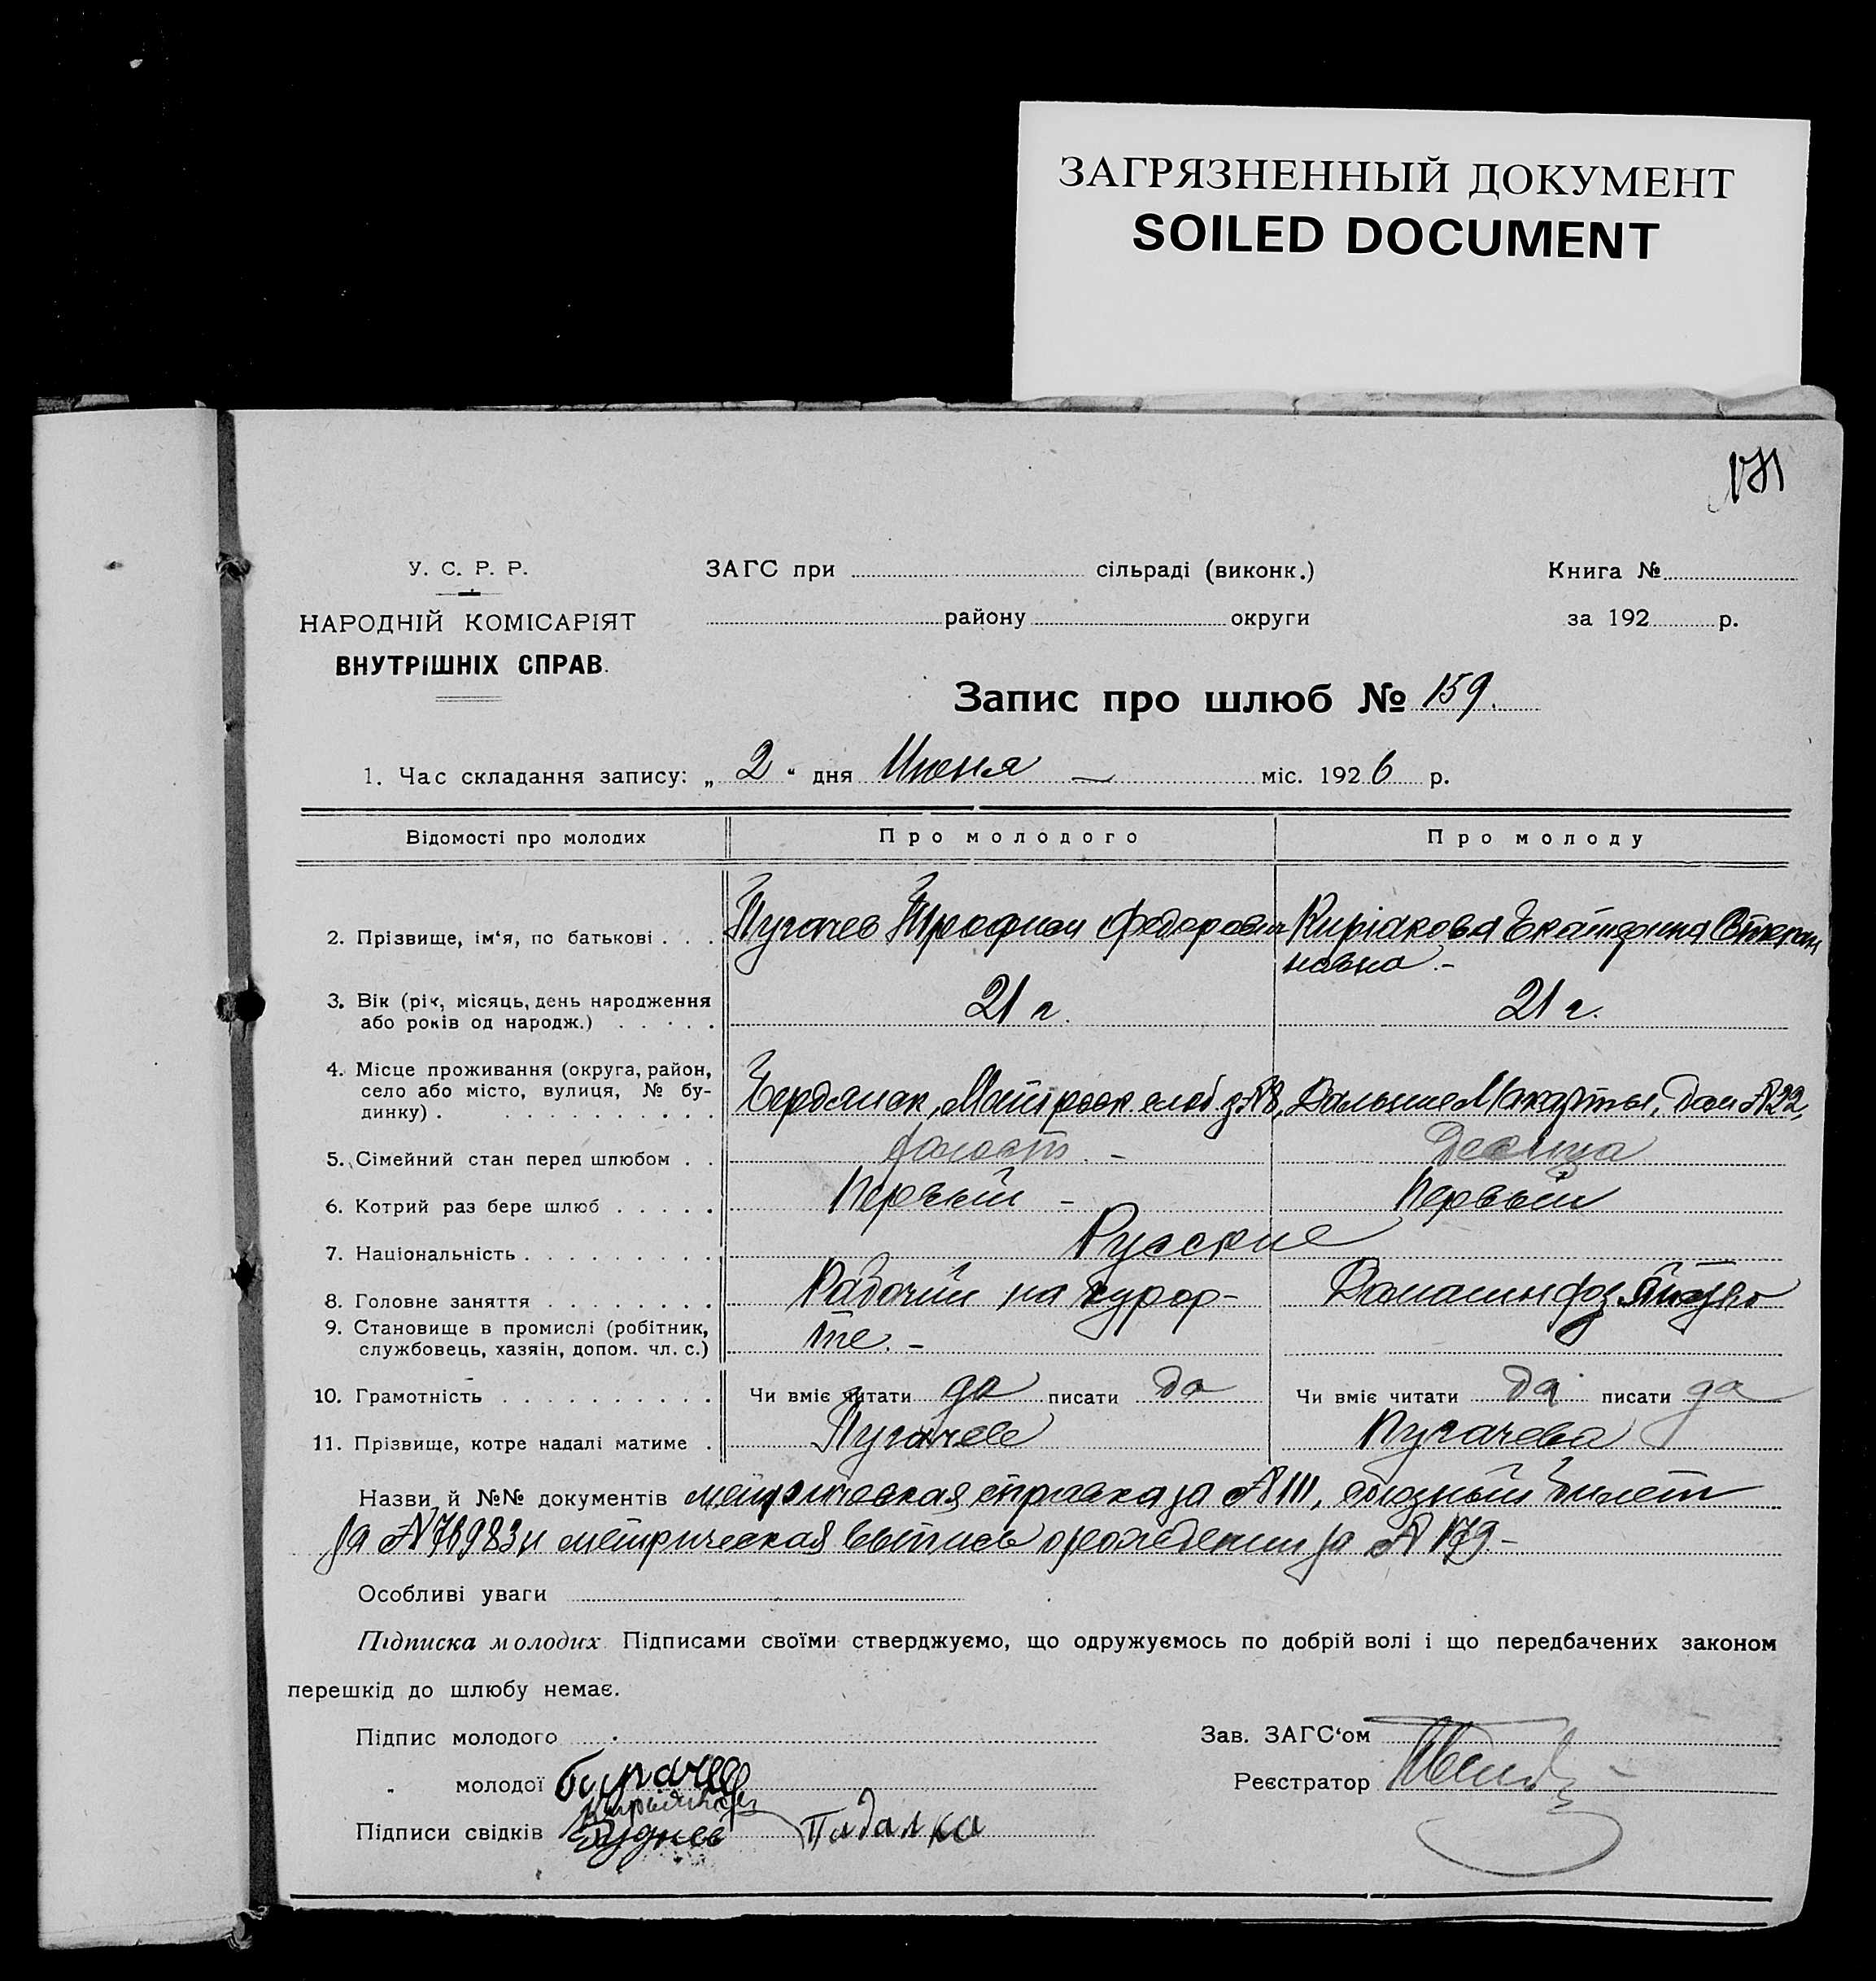 ЗАГРЯЗНЕННЫЙ ДОКУМЕНТ
SOILED DOCUMENT
171
У. С. Р. Р.
НАРОДНІЙ КОМІСАРІЯТ
ВНУТРІШНІХ СПРАВ.
ЗАГС при сільраді (виконк.)
району округи
Книга №
за 192 р.
Запис про шлюб № 159.
1. Час складання запису: „ 2 “ дня Июня — міс. 1926 р.
Відомості про молодих Про молодого Про молоду
2. Прізвище, ім‘я, по батькові . . . Пугачев Трофим Федорович Киріакова Екатерина Степан
новна. -
3. Вік (рік, місяць, день народження
або років од народж.) . . . . . 21 г. 21 г.
4. Місце проживання (округа, район,
село або місто, вулиця, № бу-
динку) . . . . . . . . . . Бердянск, Матросск слоб д. №8, Дальние Макорты, дом №22,
5. Сімейний стан перед шлюбом . . холост. - Девица
6. Котрий раз бере шлюб . . . . . Первый - Первый
7. Національність . . . . . . . . . Русские
8. Головне заняття . . . . . . . . Рабочий на курор- Домашн хоз
9. Становище в промислі (робітник,
службовець, хазяїн, допом. чл. с.) те. -
10. Грамотність . . . . . . . . . . Чи вміє читати да писати да Чи вміє читати да писати да
11. Прізвище, котре надалі матиме . Пугачев Пугачева
Назви й №№ документів метрическая справка за № 111, союзный билет
за № 76983 и метрическая выпись о рождении за № 179. -
Особливі уваги
Підписка молодих Підписами своїми стверджуємо, що одружуємось по добрій волі і що передбачених законом
перешкід до шлюбу немає.
Підпис молодого
„ молодої Пугачев
Киріакова
Підписи свідків Руднев Падалка
Зав. ЗАГС‘ом
Реєстратор